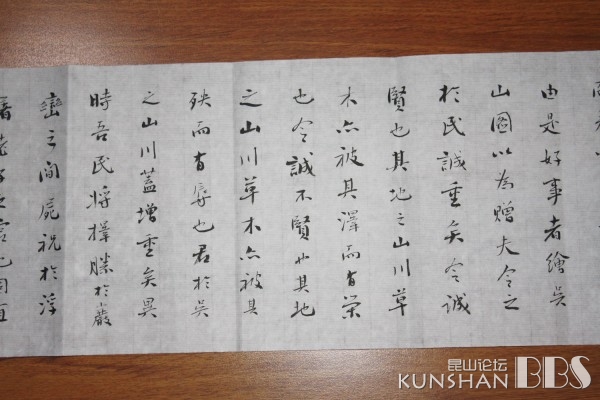 由是好事者繪吳
山圖以為贈夫令之
於民誠重矣令誠
賢也其地之山川草
木亦被其澤而有榮
也令誠不賢也其地
之山川草木亦被其
殃而有辱也君於吳
之山川蓋增重矣異
時吾民將擇勝於巖
巒之間屍祝於浮
之宮也固宜
昆山论坛
KUNSHAN BBS